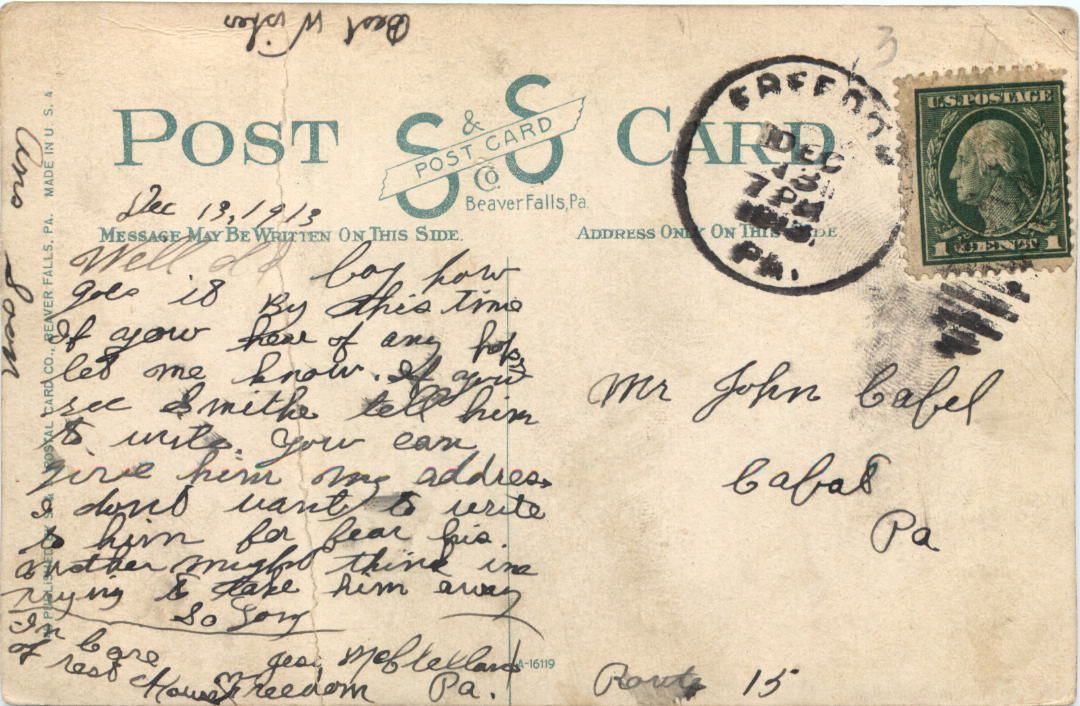 Best Wishes
3
POST CARD
S & S
POST CARD
Co
Beaver Falls, Pa.
FREEDOM
DEC
13
7 PM
1913
PA.
U.S. POSTAGE
1 CENT 1
Dec 13, 1913
MESSAGE MAY BE WRITTEN ON THIS SIDE.
ADDRESS ONLY ON THIS SIDE
Well old boy how
goes it By this time
If yow hear of any
let me know. If yow
see Smithe tell him
to write. Yow can
give him my address
I dont want to write
to him for fear his
mother might think ime
trying to take him away
So Long
In Care
of rest House
McClelland
Freedom Pa.
A-16119
Mr John Cabel
Cabot
Pa
Route 15
PUBLISHED BY S & S POSTAL CARD CO., BEAVER FALLS, PA. MADE IN U. S. A
Ans Soon